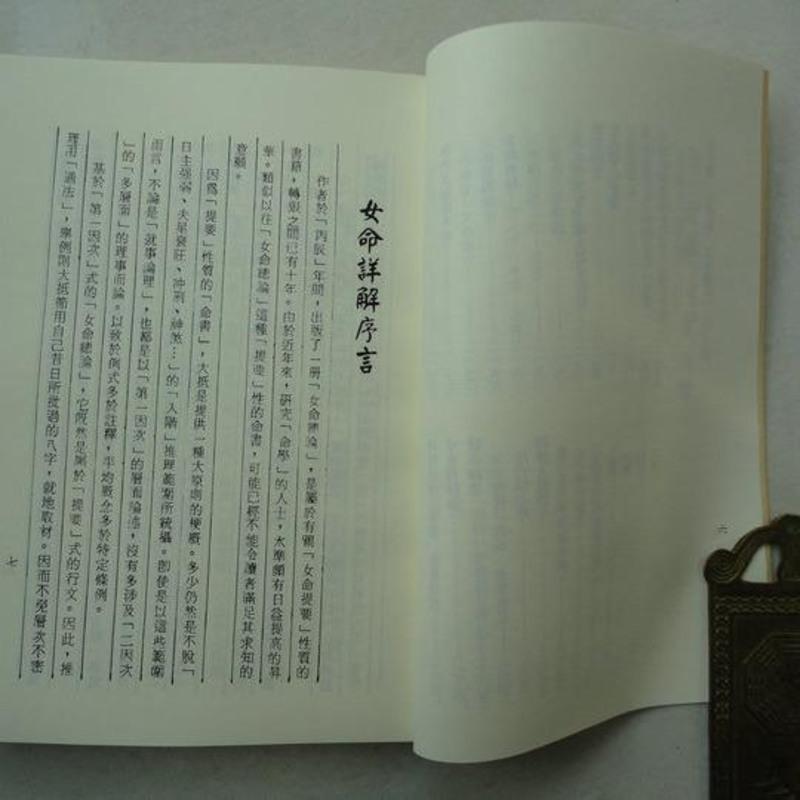 六
女命詳解序言
作者於「丙辰」年間，出版了一册「女命總論」，是屬於有關「女命提要」性質的
書籍，轉眼之間已有十年。由於近年來，研究「命學」的人士，水準頗有日益提高的昇
華。類似以往「女命總論」這種「提要」性的命書，可能已經不能令讀者滿足其求知的
意願。
因爲「提要」性質的「命書」，大抵是提供一種大原則的梗概。多少仍然是不脫「
日主强弱、夫星衰旺、冲刑、神煞…」的「入階」推理範圍所統攝。即使是以這些範圍
而言，不論是「就事論理」，也都是以「第一因次」的層面論述，沒有多涉及「二因次
」的「多層面」的理事而論。以致於例式多於註釋，平均概念多於特定條例。
基於「第一因次」式的「女命總論」，它既然是屬於「提要」式的行文。因此，推
理用「通法」，舉例則大抵節用自己昔日所批過的八字，就地取材。因而不免層次不密
七